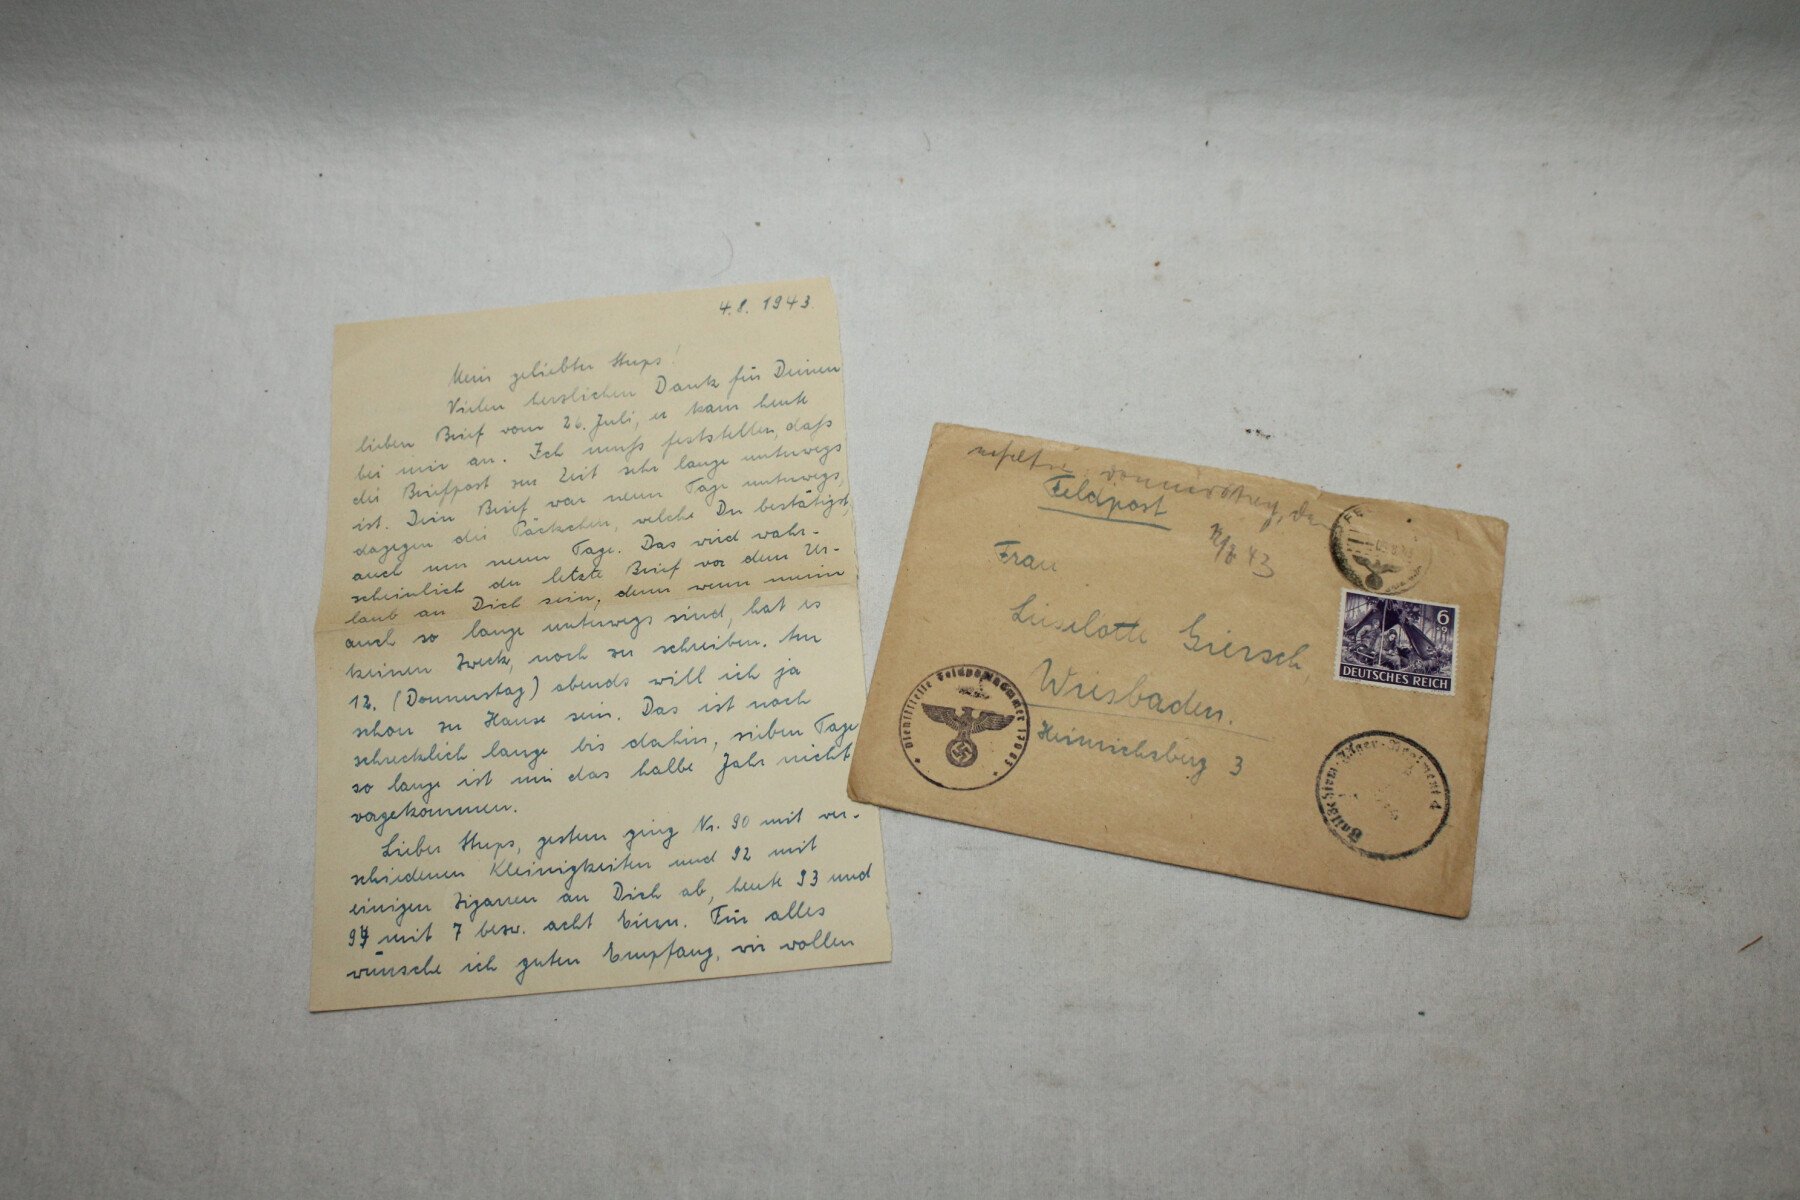 4.8. 1943.
Mein geliebter Stups!
Vielen herzlichen Dank für Deinen
lieben Brief vom 26. Juli, er kam heute
bei mir an. Ich muß feststellen, daß
die Briefpost zur Zeit sehr lange unterwegs
ist. Dein Brief war neun Tage unterwegs,
dagegen die Päckchen, welche Du bestätigst,
auch nur neun Tage. Das wird wahr-
scheinlich der letzte Brief vor dem Ur-
laub an Dich sein, denn wenn meine
auch so lange unterwegs sind, hat es
keinen Zweck, noch zu schreiben. Am
12. (Donnerstag) abends will ich ja
schon zu Hause sein. Das ist noch
schrecklich lange bis dahin, sieben Tage
so lange ist mir das halbe Jahr nicht
vorgekommen.
Lieber Stups, gestern ging Nr. 90 mit ver-
schiedenen Kleinigkeiten und 92 mit
einigen Zigarren an Dich ab, heute 93 und
94 mit 7 bezw. acht Eiern. Für alles
wünsche ich guten Empfang, wir wollen
erhalten: Donnerstag, den
12/8 43
Feldpost
Frau
Lieselotte Giersch,
Wiesbaden.
Heinrichsberg 3
6
DEUTSCHES REICH
Dienststelle Feldpostnummer
Jäger-Regiment 4